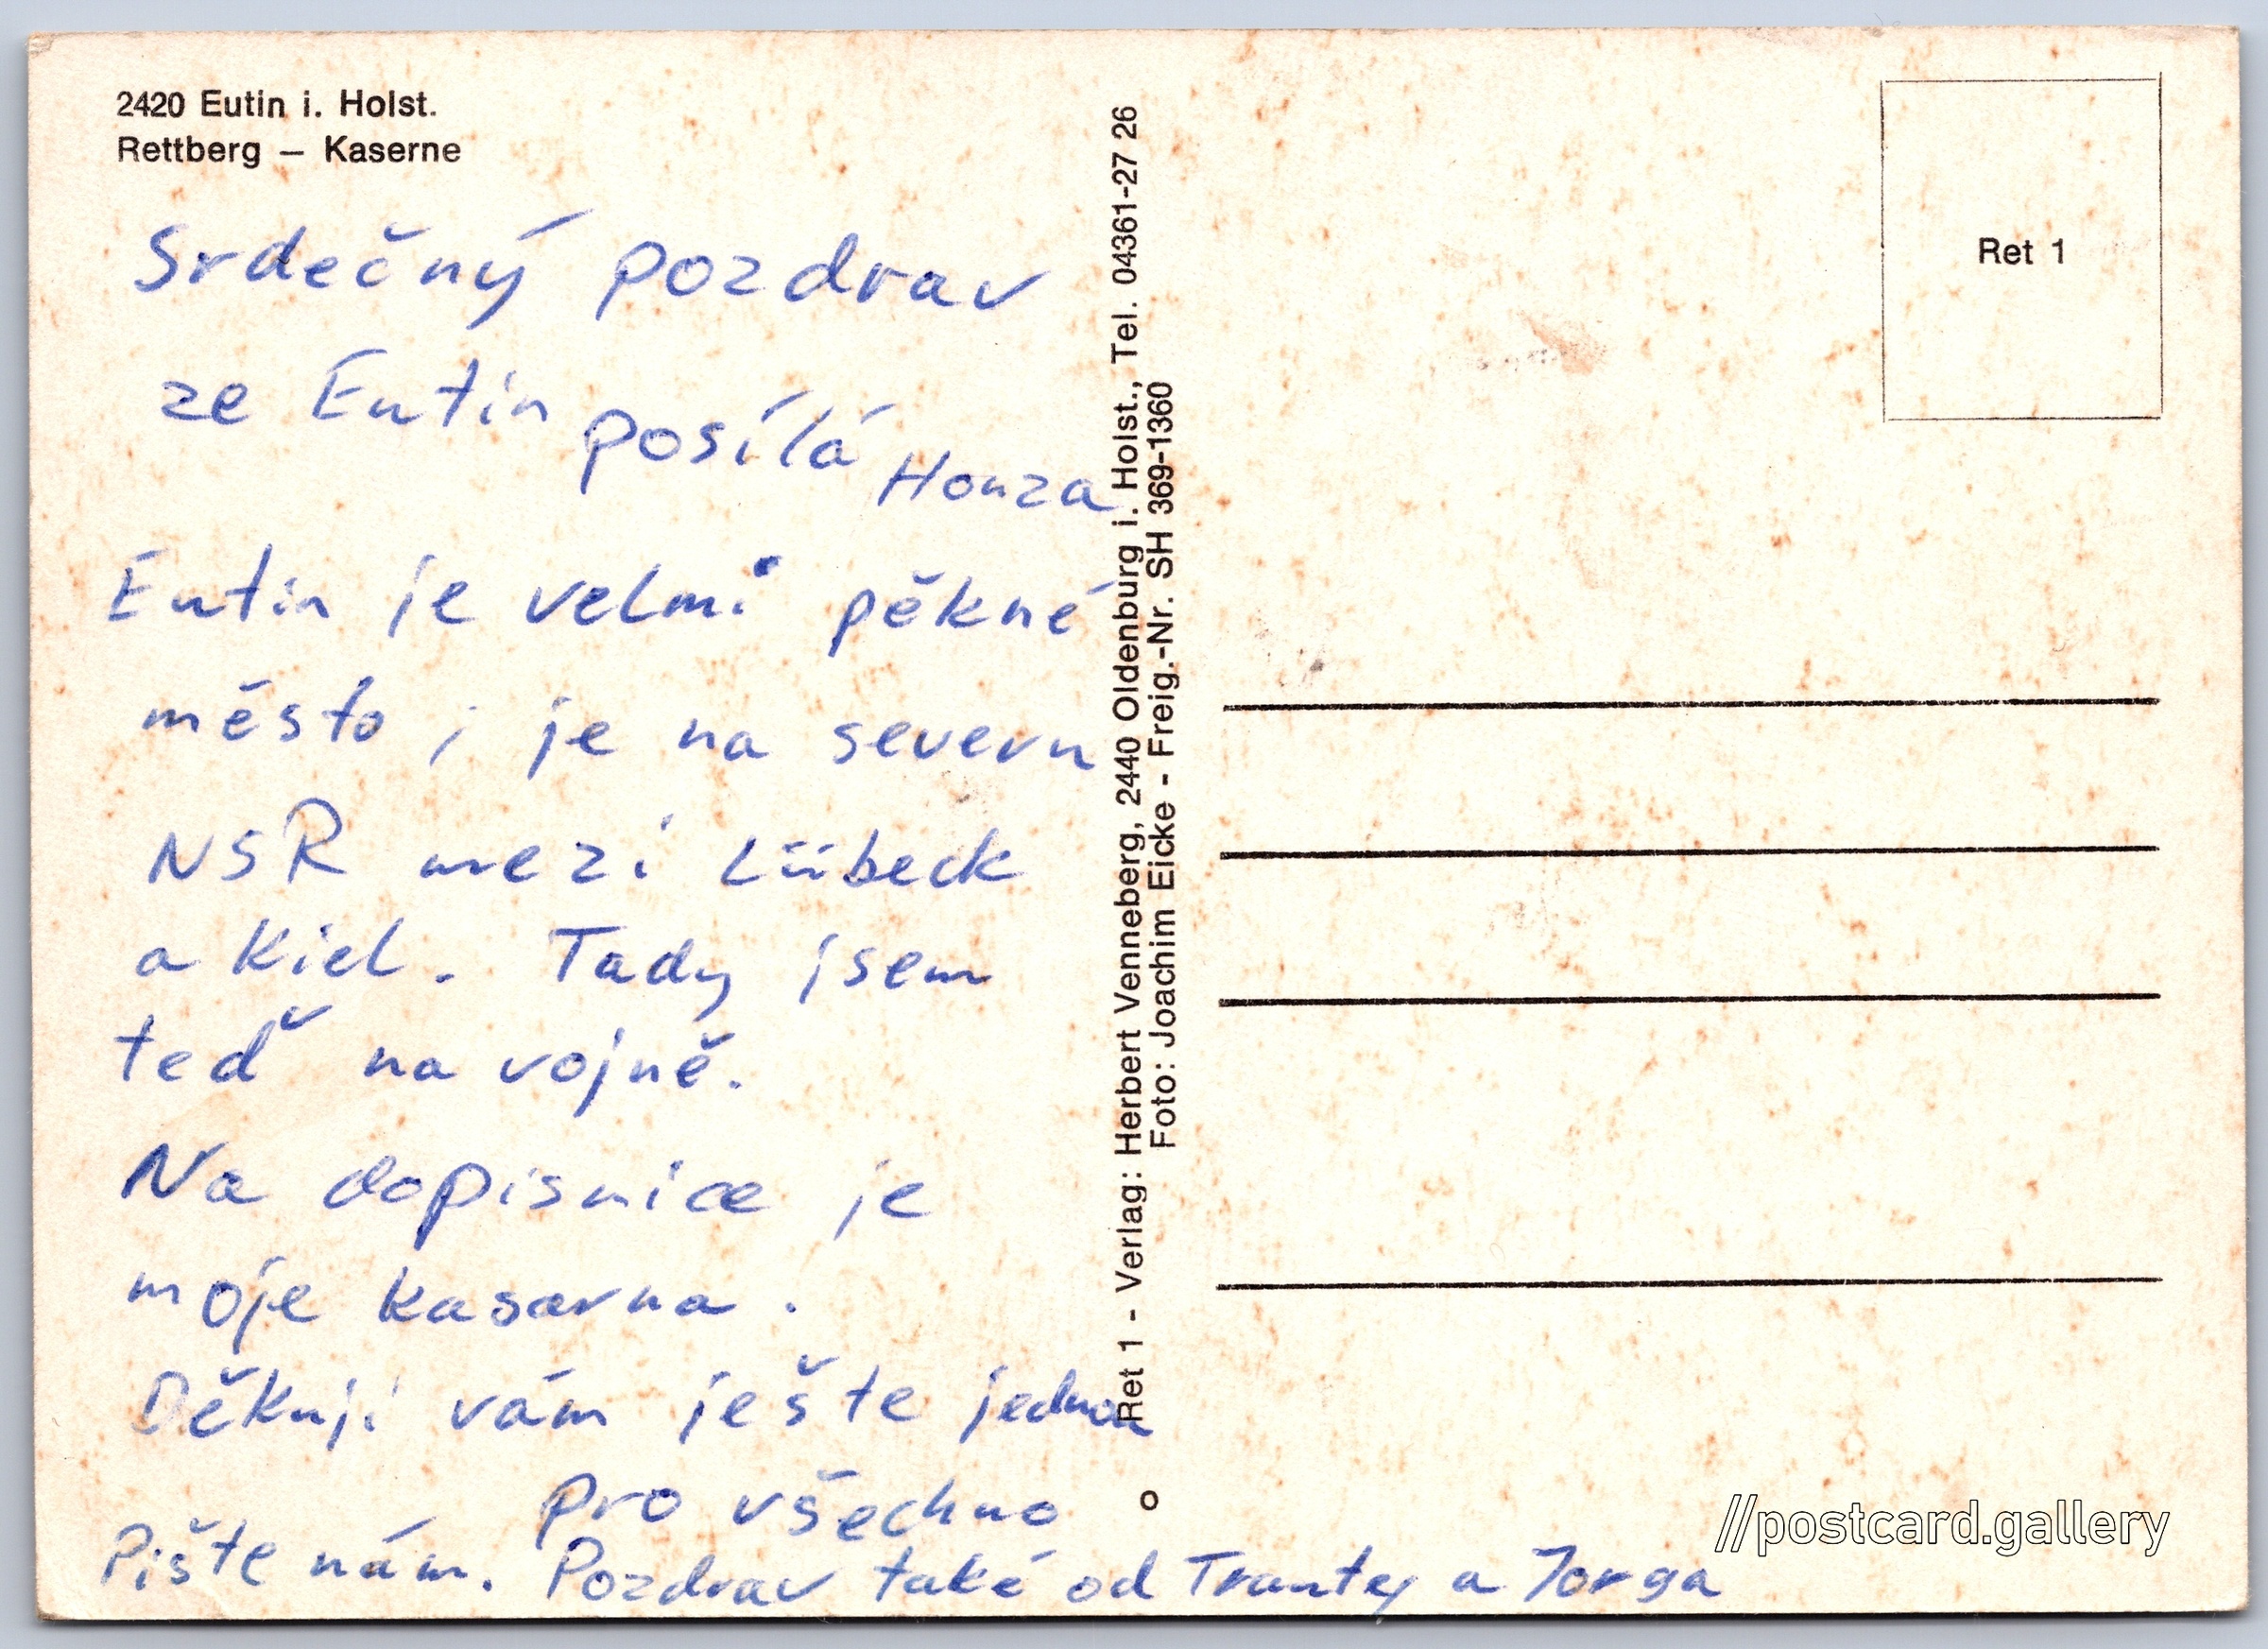 2420 Eutin i. Holst.
Rettberg – Kaserne
Srdečný pozdrav
ze Eutin posílá Honza
Eutin je velmi pěkné
město, je na severu
NSR mezi Lübeck
a Kiel. Tady jsem
teď na vojně.
Na dopisnice je
moje kasarna.
Děkuji vám ješte jednou
pro všechno
Pište nám. Pozdrav také od Trautey a Jorga
Ret 1 - Verlag: Herbert Venneberg, 2440 Oldenburg i. Holst., Tel. 04361-27 26
Foto: Joachim Eicke - Freig.-Nr. SH 369-1360
Ret 1
//postcard.gallery